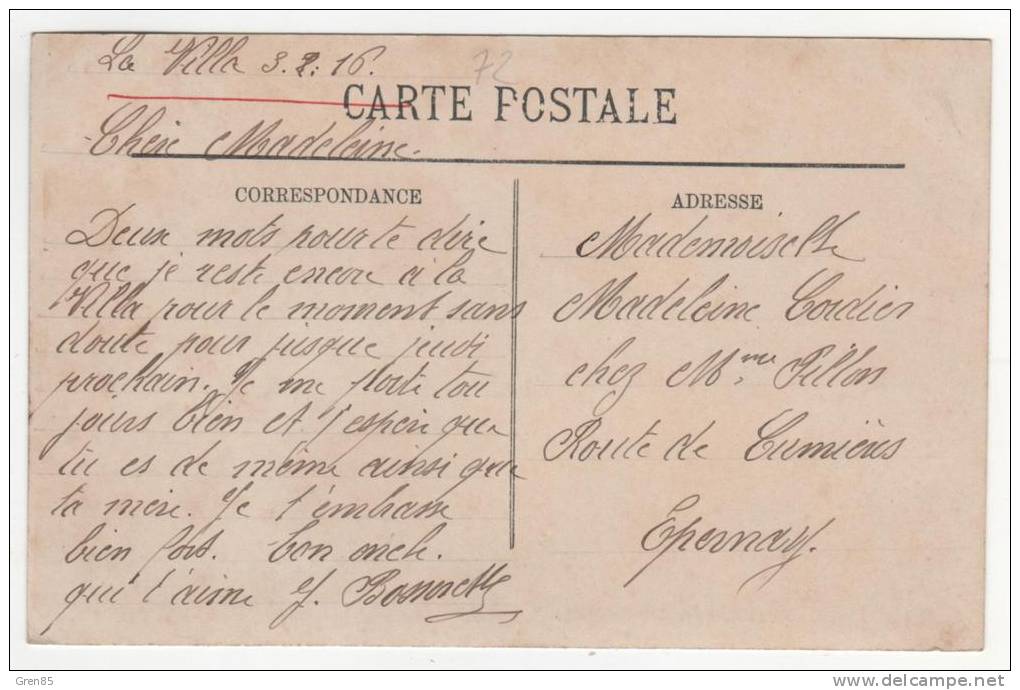 La Villa 3.2.16.
72
CARTE POSTALE
Chère Madeleine.
CORRESPONDANCE
Deux mots pour te dire
que je reste encore à la
Villa pour le moment sans
doute pour jusque jeudi
prochain. Je me porte tou
jours bien et j'espère que
tu es de même ainsi que
ta mère. Je t'embrasse
bien fort. Ton oncle.
qui t'aime J.
ADRESSE
Mademoiselle
Madeleine Cordier
chez Mme Pillon
Route de Cumières
Epernay.
Gren85
www.delcampe.net